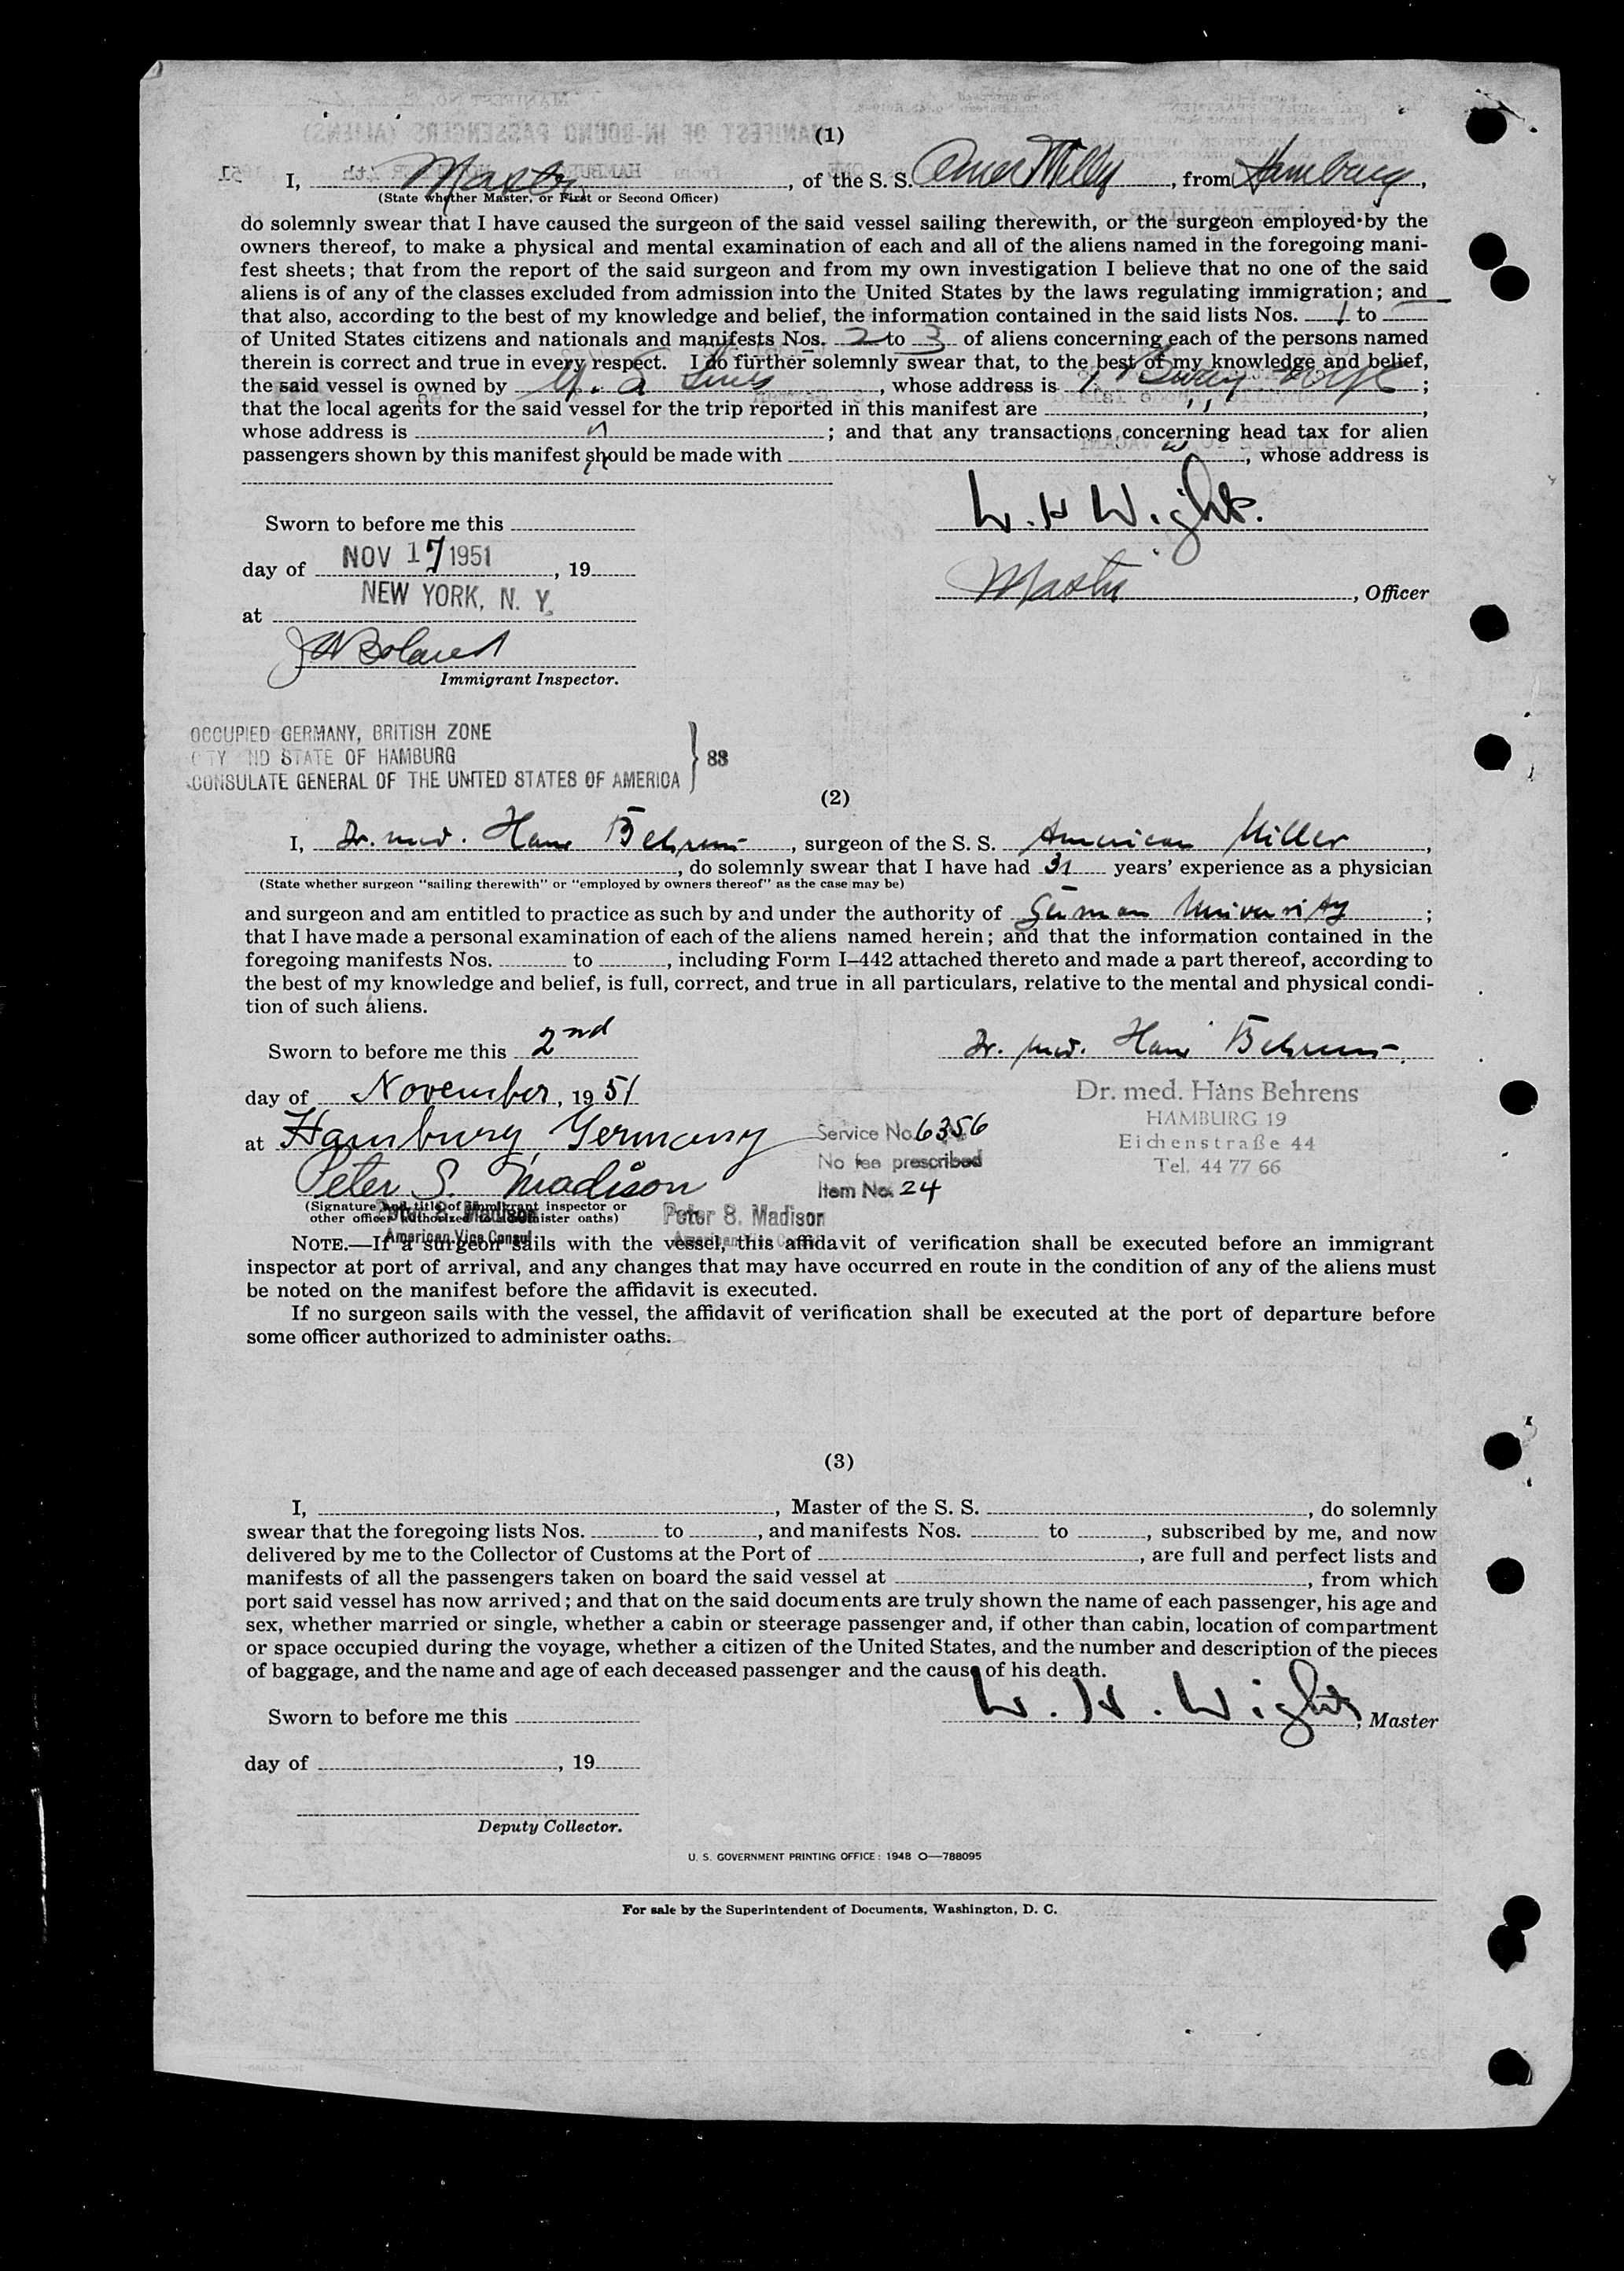 (1)
I, Master, of the S. S. Amer Miller, from Hamburg,
(State whether Master, or First or Second Officer)
do solemnly swear that I have caused the surgeon of the said vessel sailing therewith, or the surgeon employed by the
owners thereof, to make a physical and mental examination of each and all of the aliens named in the foregoing mani-
fest sheets; that from the report of the said surgeon and from my own investigation I believe that no one of the said
aliens is of any of the classes excluded from admission into the United States by the laws regulating immigration; and
that also, according to the best of my knowledge and belief, the information contained in the said lists Nos. 1 to
of United States citizens and nationals and manifests Nos. 2 to 3 of aliens concerning each of the persons named
therein is correct and true in every respect. I do further solemnly swear that, to the best of my knowledge and belief,
the said vessel is owned by U. S. Lines, whose address is 1 Bway ;
that the local agents for the said vessel for the trip reported in this manifest are " ,
whose address is " ; and that any transactions concerning head tax for alien
passengers shown by this manifest should be made with " , whose address is
"
W. H Wight.
Sworn to before me this
day of NOV 17 1951, 19
Master, Officer
at NEW YORK, N. Y.
Immigrant Inspector.
OCCUPIED GERMANY, BRITISH ZONE
CITY AND STATE OF HAMBURG
CONSULATE GENERAL OF THE UNITED STATES OF AMERICA } SS
(2)
I, Dr. med. Hans Behrens, surgeon of the S. S. American Miller,
, do solemnly swear that I have had 31 years' experience as a physician
(State whether surgeon "sailing therewith" or "employed by owners thereof" as the case may be)
and surgeon and am entitled to practice as such by and under the authority of German University ;
that I have made a personal examination of each of the aliens named herein; and that the information contained in the
foregoing manifests Nos. to , including Form I-442 attached thereto and made a part thereof, according to
the best of my knowledge and belief, is full, correct, and true in all particulars, relative to the mental and physical condi-
tion of such aliens.
Sworn to before me this 2nd
Dr. med. Hans Behrens.
day of November, 19 51
Dr. med. Hans Behrens
HAMBURG 19
Eichenstraße 44
Tel. 44 77 66
at Hamburg, Germany
Service No. 6356
No fee prescribed
Item No. 24
Peter S. Madison
(Signature and title of immigrant inspector or
other officer authorized to administer oaths)
Peter S. Madison
American Vice Consul
Peter S. Madison
American Vice Consul
NOTE.—If a surgeon sails with the vessel, this affidavit of verification shall be executed before an immigrant
inspector at port of arrival, and any changes that may have occurred en route in the condition of any of the aliens must
be noted on the manifest before the affidavit is executed.
If no surgeon sails with the vessel, the affidavit of verification shall be executed at the port of departure before
some officer authorized to administer oaths.
(3)
I, , Master of the S. S. , do solemnly
swear that the foregoing lists Nos. to , and manifests Nos. to , subscribed by me, and now
delivered by me to the Collector of Customs at the Port of , are full and perfect lists and
manifests of all the passengers taken on board the said vessel at , from which
port said vessel has now arrived; and that on the said documents are truly shown the name of each passenger, his age and
sex, whether married or single, whether a cabin or steerage passenger and, if other than cabin, location of compartment
or space occupied during the voyage, whether a citizen of the United States, and the number and description of the pieces
of baggage, and the name and age of each deceased passenger and the cause of his death.
Sworn to before me this
W. H. Wight, Master
day of , 19
Deputy Collector.
U. S. GOVERNMENT PRINTING OFFICE: 1948 O—788095
For sale by the Superintendent of Documents, Washington, D. C.